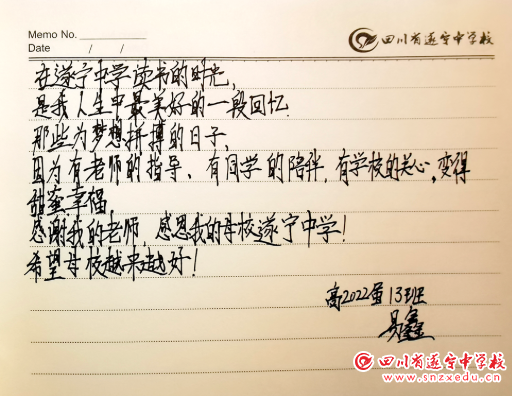 Memo No.
四川省遂宁中学校
Date / /
在遂宁中学读书的时光,
是我人生中最美好的一段回忆.
那些为梦想拼搏的日子,
因为有老师的指导、有同学的陪伴,有学校的关心,变得
甜蜜幸福
感谢我的老师,感恩我的母校遂宁中学!
希望母校越来越好!
高2022届13班
易鑫
四川省遂宁中学校
www.snzxedu.cn